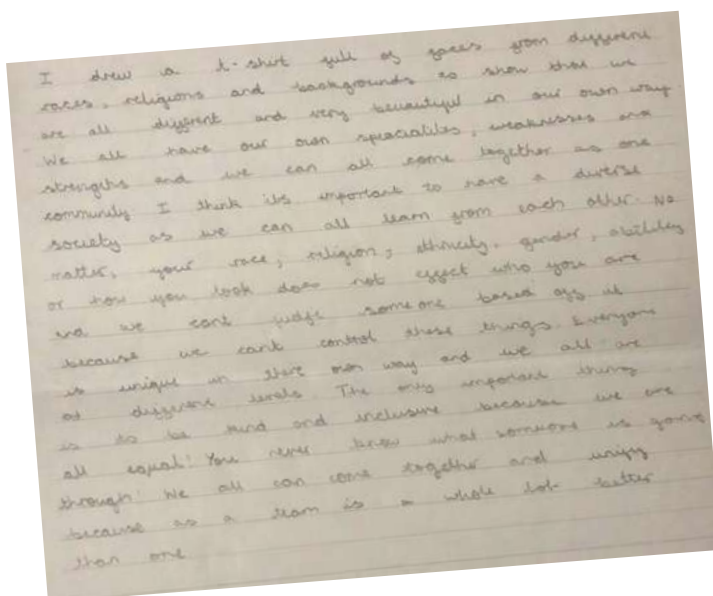 I drew a t-shirt full of faces from different
races, religions and backgrounds to show that we
are all different and very beautiful in our own way
We all have our own specialities, weaknesses and
strengths and we can all come together as one
community I think its important to have a diverse
society as we can all learn from each other. No
matter, your race, religion, ethnicity, gender, abilities
or how you look does not effect who you are
and we cant judge someone based off it
because we cant control these things. Everyone
is unique in there own way and we all are
at different levels. The only important thing
is to be kind and inclusive because we are
all equal! You never know what someone is going
through! We all can come together and unify
because as a team is a whole lot better
than one